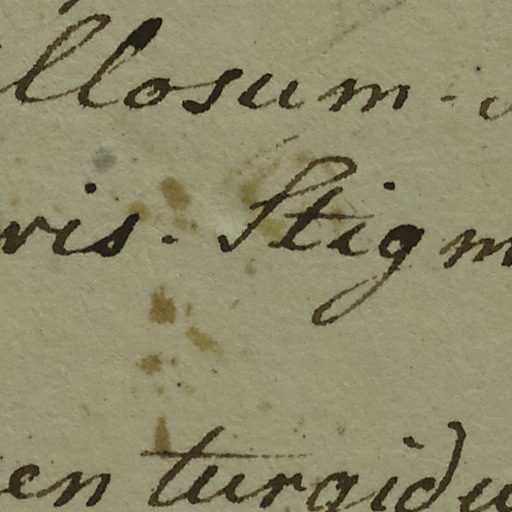 llosum.
ris. Stigm
en turgidu